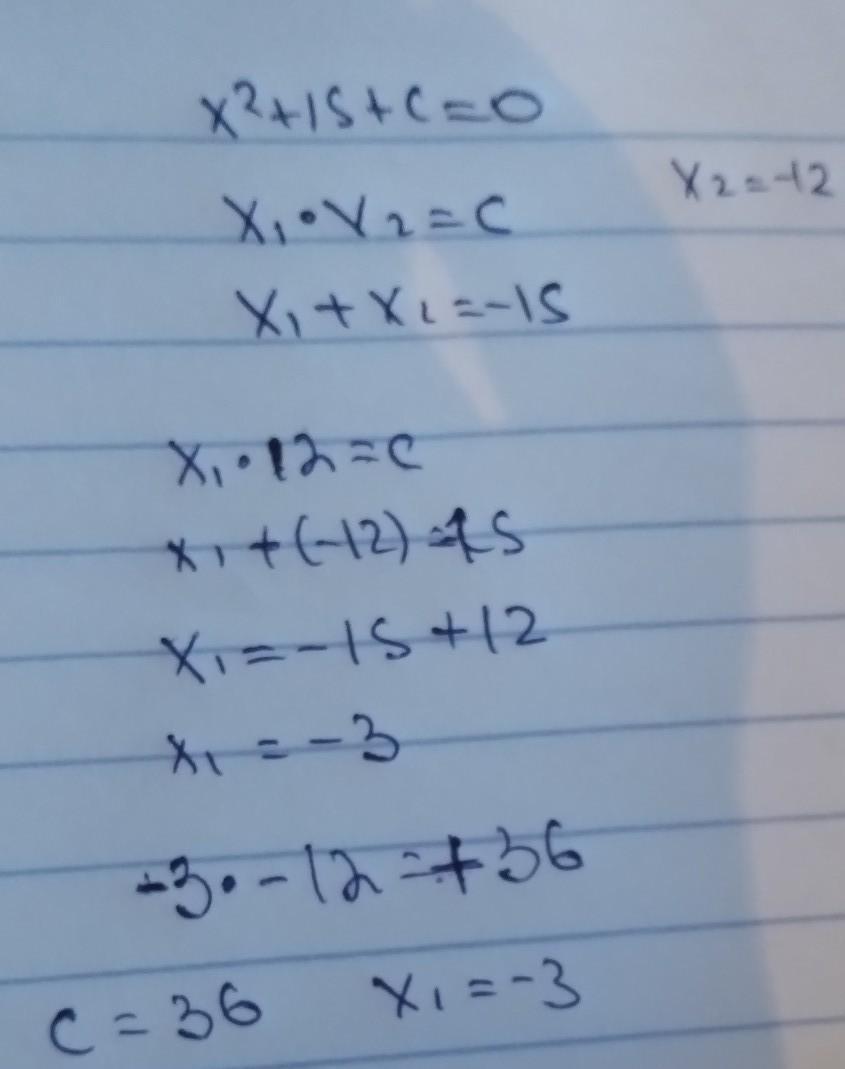 x²+15+c=0
x₂=-12
x₁•x₂=c
x₁+x₂=-15
x₁•12=c
x₁+(-12)=-15
x₁=-15+12
x₁=-3
-3•-12=+36
c=36 x₁=-3